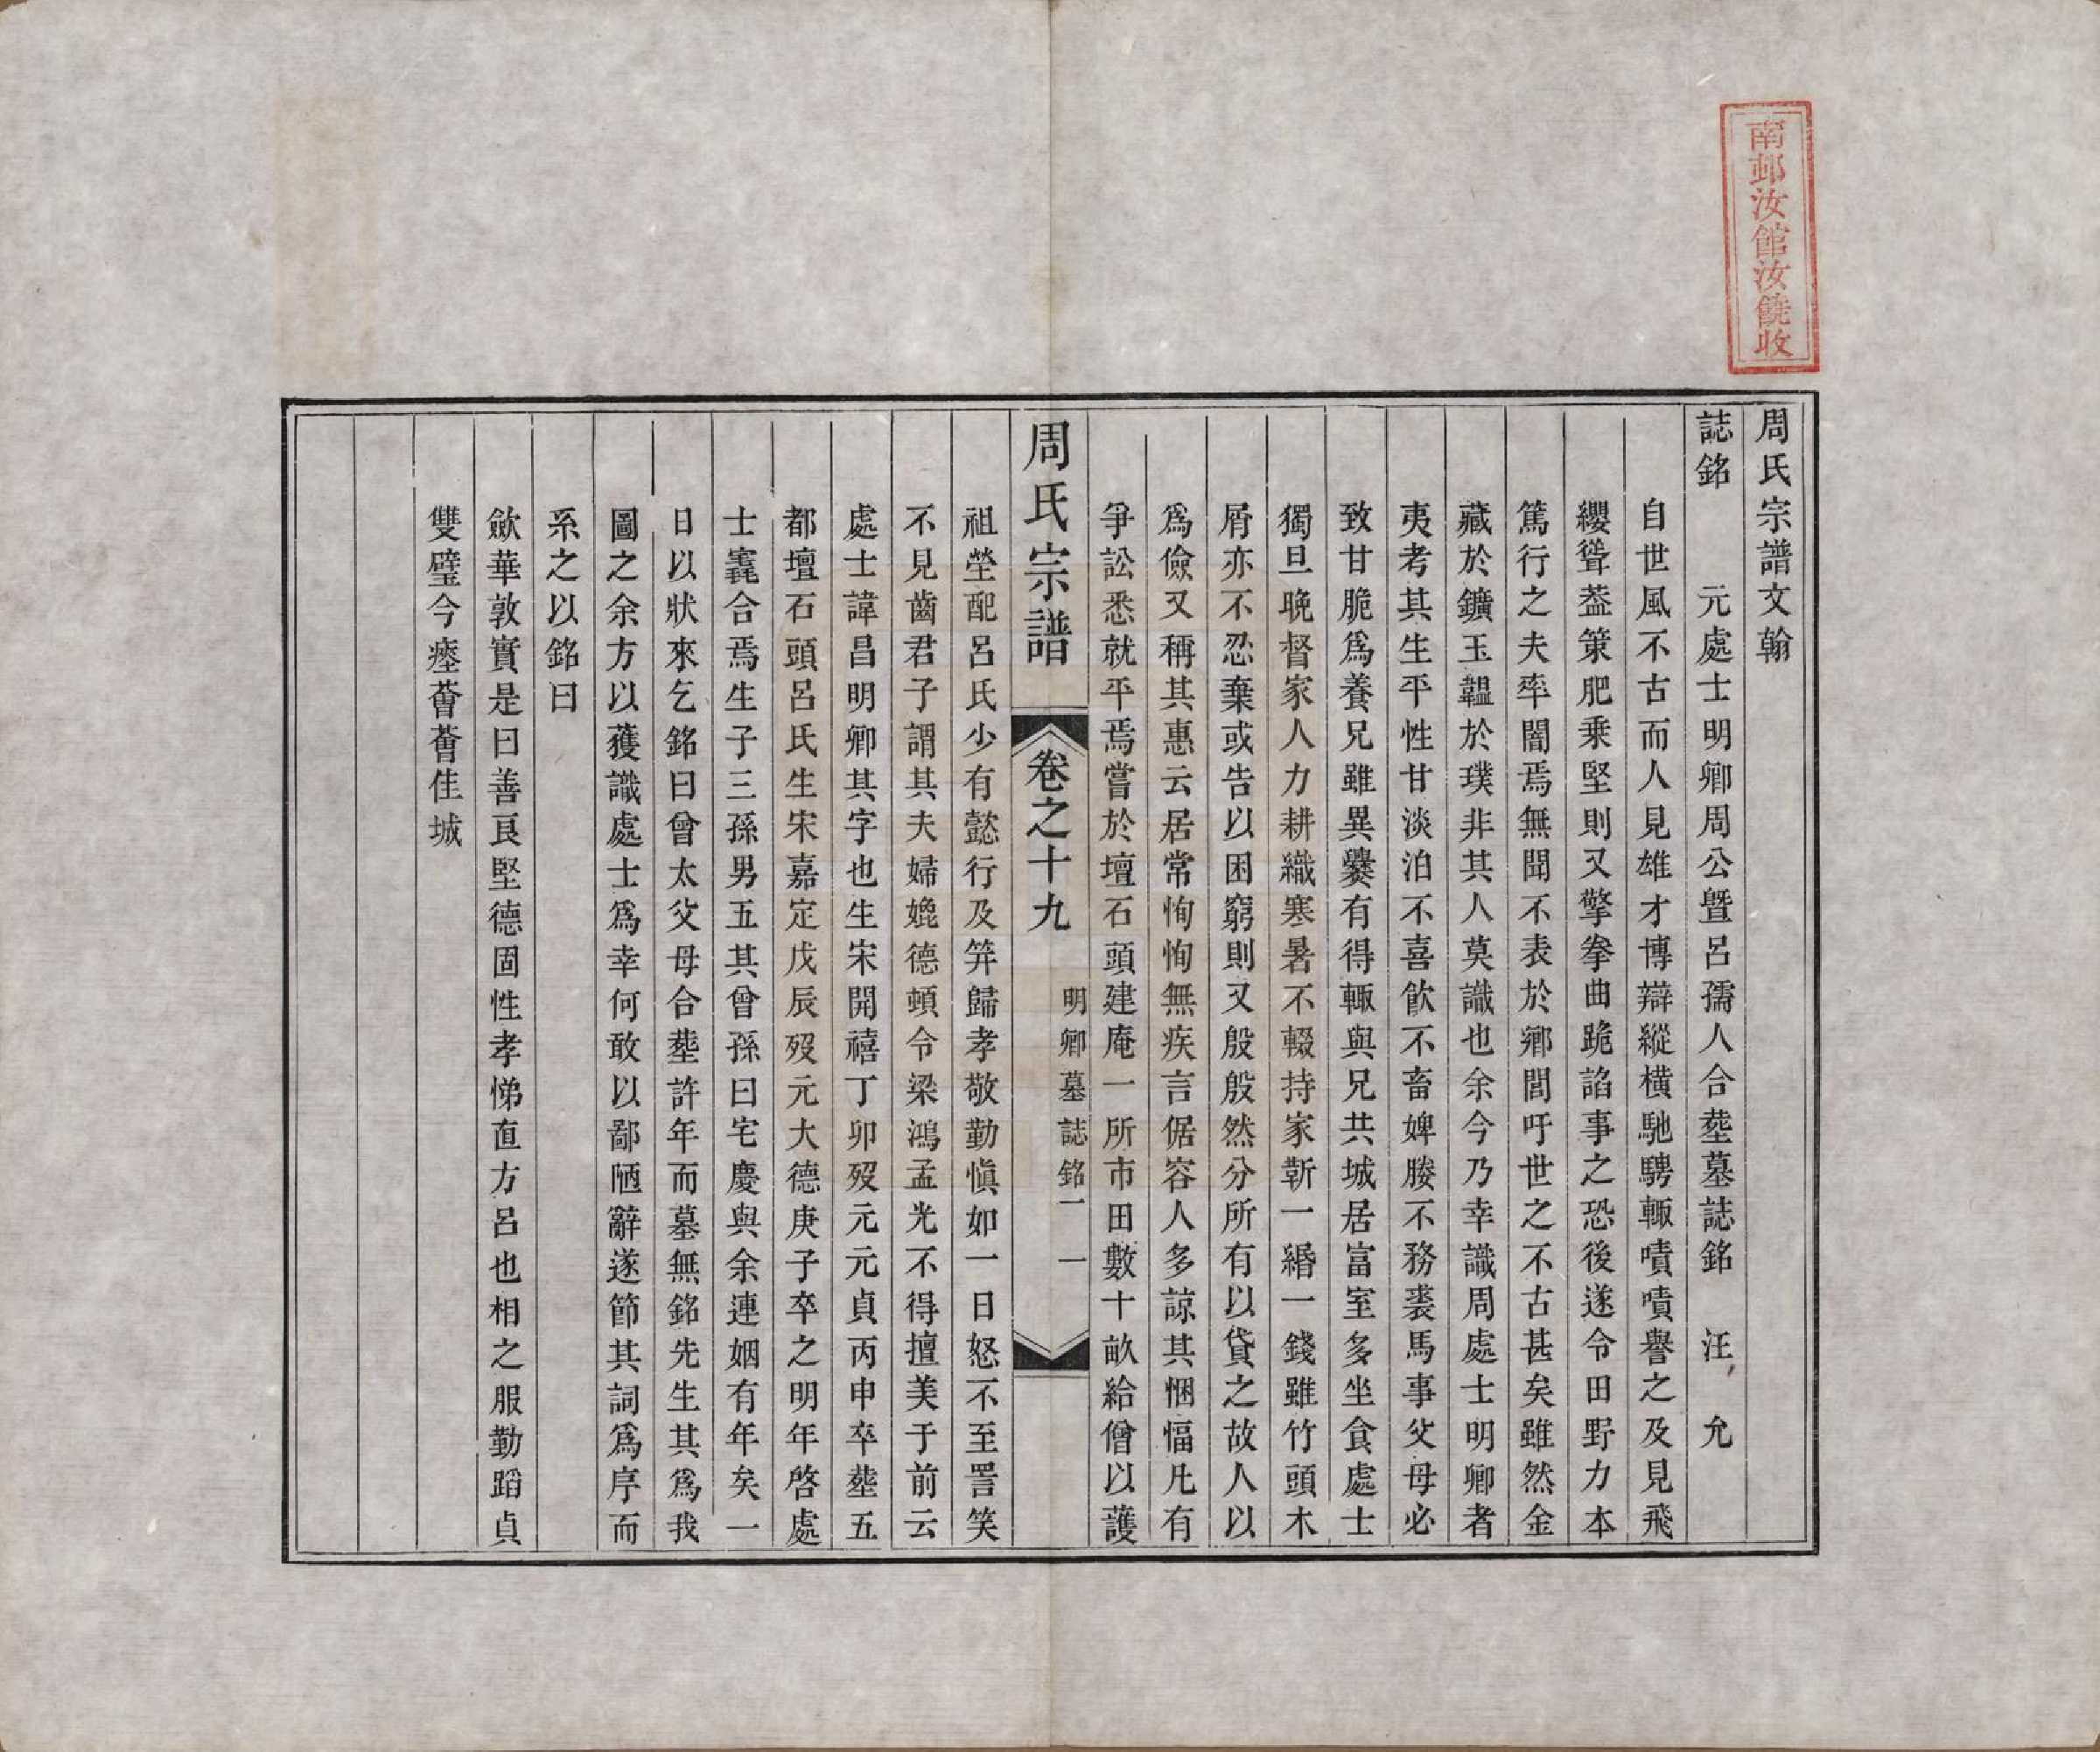 南邨汝館汝饒收
周氏宗譜文翰
誌銘 元處士明卿周公暨呂孺人合塟墓誌銘 汪 允
自世風不古而人見雄才博辯縱橫馳騁輙嘖嘖譽之及見飛
纓聳葢策肥乘堅則又擎拳曲跪諂事之恐後遂令田野力本
篤行之夫率闇焉無聞不表於鄉閭吁世之不古甚矣雖然金
藏於鑛玉韞於璞非其人莫識也余今乃幸識周處士明卿者
夷考其生平性甘淡泊不喜飮不畜婢媵不務裘馬事父母必
致甘脆爲養兄雖異爨有得輙與兄共城居富室多坐食處士
獨旦晚督家人力耕織寒暑不輟持家靳一緡一錢雖竹頭木
屑亦不忍棄或告以困窮則又殷殷然分所有以貸之故人以
爲儉又稱其惠云居常恂恂無疾言倨容人多諒其悃愊凡有
爭訟悉就平焉嘗於壇石頭建庵一所市田數十畝給僧以護
周氏宗譜 卷之十九 明卿墓誌銘二 一
祖塋配呂氏少有懿行及笄歸孝敬勤愼如一日怒不至詈笑
不見齒君子謂其夫婦媲德頓令梁鴻孟光不得擅美于前云
處士諱昌明卿其字也生宋開禧丁卯歿元元貞丙申卒塟五
都壇石頭呂氏生宋嘉定戊辰歿元大德庚子卒之明年啓處
士竁合焉生子三孫男五其曾孫曰宅慶與余連姻有年矣一
日以狀來乞銘曰曾太父母合塟許年而墓無銘先生其爲我
圖之余方以獲識處士爲幸何敢以鄙陋辭遂節其詞爲序而
系之以銘曰
歛華敦實是曰善良堅德固性孝悌直方呂也相之服勤蹈貞
雙璧今瘞薈薈佳城